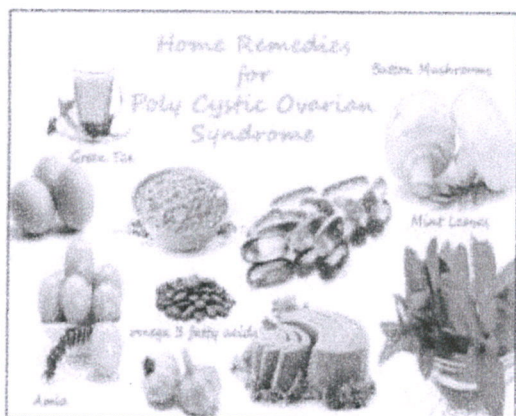 Home Remedies
for
Poly Cystic Ovarian
Syndrome
Button Mushrooms
Green Tea
Mint Leaves
omega 3 fatty acids
Amla